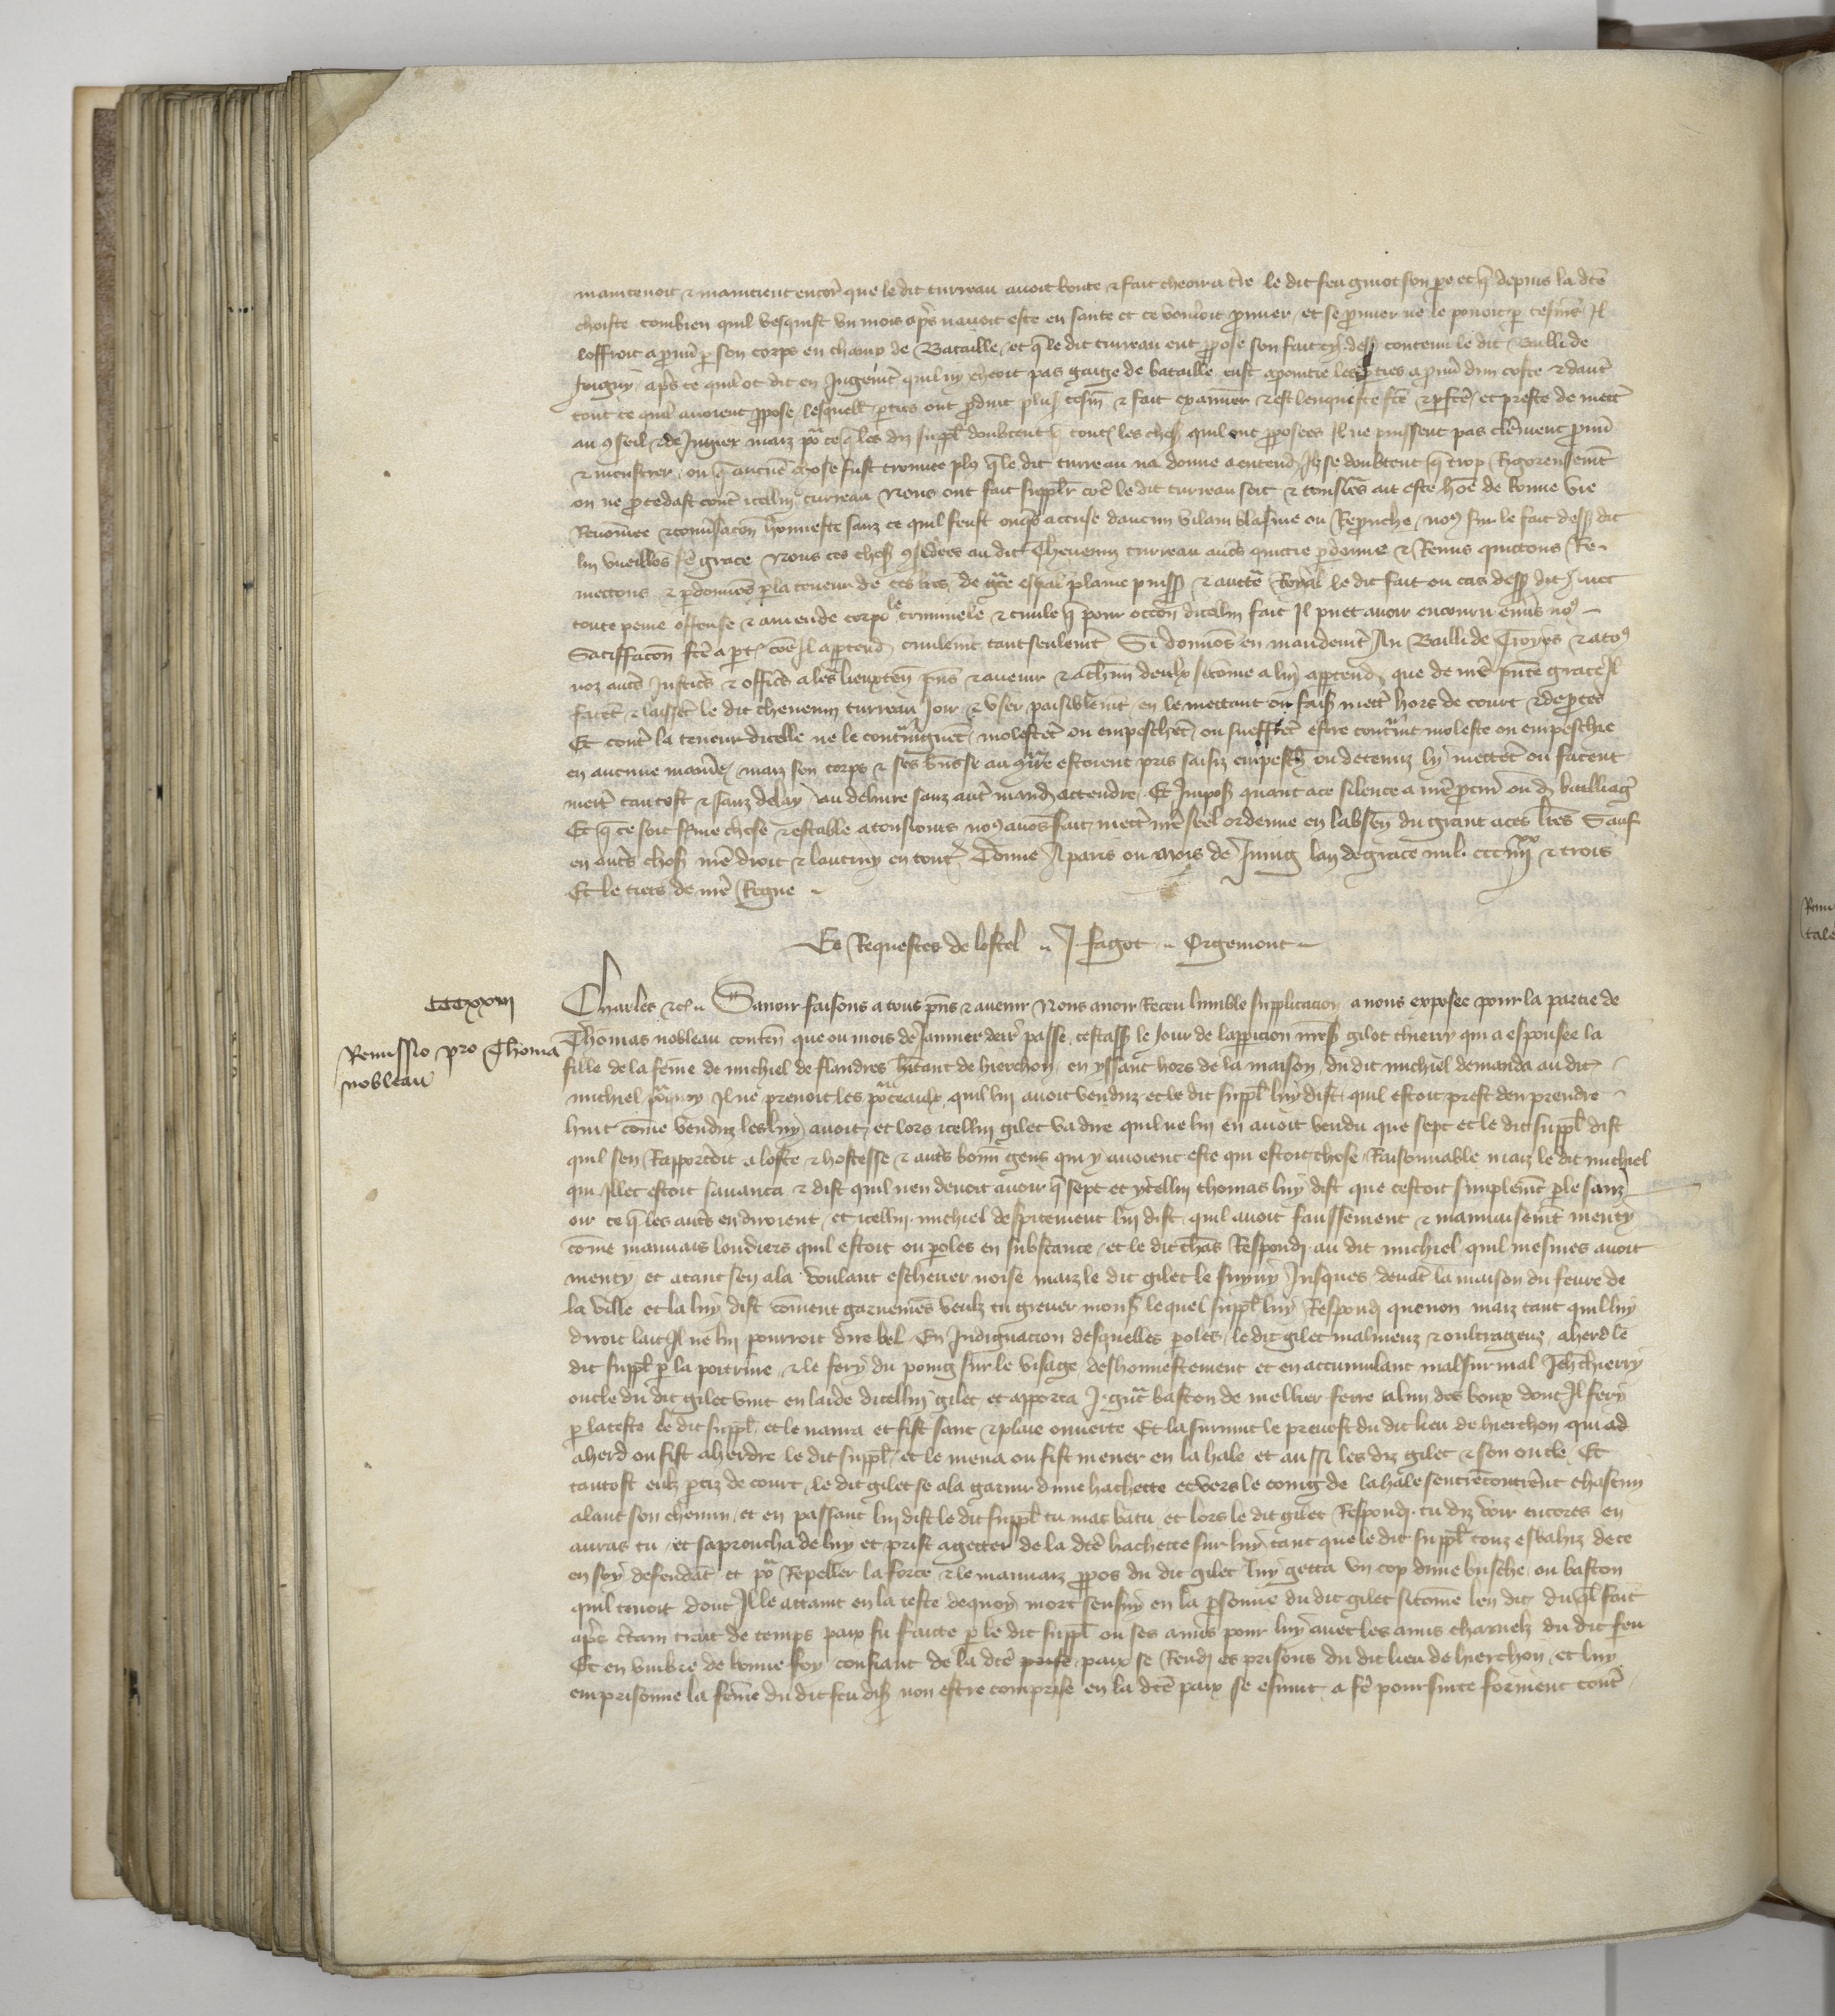 maintenoit & maintient encor que le dit turreau avoit boute & fait cheoir a tre le dit feu guiot son pe et q depuis la dce
choiste combien quil vesquist un mois aps navoit este en sante et ce vouloit prouver et se prouver ne le povoit p tesmis Il
loffroit a prouv p son corps en champ de Bataille et q le dit turreau eut ppose son fait cy dess contenu le dit Bailli de
Joigny aps ce quil ot dit en Jugemt quil ny cheoit pas gaige de bataille eust apointie les pties a prouv dun coste & daut
tout ce quil avoient ppose lesquelx pties ont pduit plus tesm & fait examiner & est lenqueste fce & pfce et preste de mett
au 9seil & de Juger maiz po ce q les diz suppl doubtent q toutes les choses quil ont pposees Il ne puissent pas clerement prouv
& monstrer ou q aucune chose fust trouvee plus q le dit turreau na donne a entend Ilz se doubtent q trop Rigoreusemt
on ne procedast cont icellui turreau Nous ont fait supplir coe le dit turreau soit & tousjs ait este hoe de bonne vie
Renomee & conversacon honneste sanz ce quil feust onqs accuse daucun vilain blasme ou Reprouche no9 sur le fait dess dit
lui vueillos fe grace Nous ces choses 9siderees au dit Thevenin turreau avos quictie pdonne & Remis quictons Re
mettons & pdonnons p la teneur de ces lres de gce espal plaine puiss & auctte Royal le dit fait ou cas dess dit avec
toute peine offense & amende corporele criminele & civile q pour occon dicellui fait Il puet avoir encouru envs no9
Satiffacon fce a ptie coe Il apptend civilemt tant seulemt Si donnos en mandemt Au Bailli de Troyes & a to9
noz auts Justics & offics a leurs lieuxten pns & avenir & a chun deulx sicome a lui apptend que de nre pnte grace Il
facet & laisset le dit thevenin turreau Jouir & user paisiblemt en le mettant ou fais mett hors de court & de pces
Et cont la teneur dicelle ne le contraignet molestet ou empeschet ou sueffret estre contraint moleste ou empeschie
en aucune maniere maiz son corps & ses bns se au 9tre estoient pris saisiz empeschz ou detenuz ly mettet ou facent
mett tantost & sanz delay au delivre sanz aut mand attendre Et Imposs quant a ce silence a nre pcur ou d bailliage
Et q ce soit ferme chose & estable a tousjours no9 avos fait mett nre seel ordenne en labsen du grant a ces lres Sauf
en auts choses nre droit & lautruy en toutes Donne A paris ou mois de Juing lan de grace mil ccc iiijxx & trois
Et le tiers de nre Regne
Es Requestes de lostel J fagot Orgemont
CCCxxiii
Remissio pro Thoma
nobleau
Charles &c Savoir faisons a tous pns & avenir Nous avoir Receu lumble supplicacion a nous exposee pour la partie de
Thomas nobleau conten que ou mois de Janvier derr passe cestass le Jour de lappicion nres gilet thierry qui a espousee la
fille de la feme de michiel de flandres hitant de hierchon en yssant hors de la maison du dit michiel demanda au dit
michiel pourquoy Il ne prenoit les pourceaulx quil lui avoit venduz et le dit suppl luy dist quil estoit prest den prendre
huit come venduz les luy avoit et lors icellui gilet va dire quil ne lui en avoit vendu que sept et le dit suppl dist
quil sen Rapporteroit a loste & hostesse & auts bonn gens qui y avoient este qui estoit chose Raisonnable maiz le dit michiel
qui Illec estoit savanca & dist quil nen devoit avoir q sept et ycellui thomas luy dist que cestoit simplemt ple sanz
oir ce q les auts en diroient et icellui michiel despitement lui dist quil avoit faussement & mauvaisemt menty
come mauvais loudiers quil estoit ou poles en substance et le dit thas Respond au dit michiel quil mesmes avoit
menty et atant sen ala voulant eschever noise maiz le dit gilet le suyvy Jusques devat la maison du fevre de
la ville et la luy dist coment garnemes veulz tu grever mons lequel suppl luy Respond que non maiz tant quil luy
diroit lait Il ne lui pourroit dire bel En Indignacion desquelles poles le dit gilet malmeuz & oultrageuz aherd le
dit suppl p la poitrine & le fery du poing sur le visage deshonnestement et en accumulant mal sur mal Jeh thierry
oncle du dit gilet vint en laide dicellui gilet et apporta J grat baston de mellier ferre a lun des boux dont Il fery
p la teste le dit suppl et le navra et fist sanc & plaie ouverte Et la survint le prevost du dit lieu de hierchon qui ad
aherd ou fist aherdre le dit suppl et le mena ou fist mener en la hale et aussi les diz gilet & son oncle Et
tantost eulz ptiz de court le dit gilet se ala garnir dune hachette et vers le coing de la hale sentrencontrent chascun
alant son chemin et en passant lui dist le dit suppl tu mas batu et lors le dit gilet Respond tu diz voir encores en
auras tu et saproucha de luy et prist a getter de la dce hachette sur luy tant que le dit suppl touz esbahiz de ce
en soy defendat et po Repeller la force & le mauvaiz ppos du dit gilet luy getta un cop dune busche ou baston
quil tenoit dont Il le attaint en la teste de quoy mort sensuy en la psonne du dit gilet sicome len dit du ql fait
aps ctain trait de temps paix fu faicte p le dit suppl ou ses amis pour luy avec les amis charnelz du dit feu
Et en umbre de bonne foy confiant de la dce prise paix se Rend es prisons du dit lieu de hierchon et luy
emprisonne la feme du dit feu dis non estre comprise en la dce paix se esmut a fe poursuite forment cont